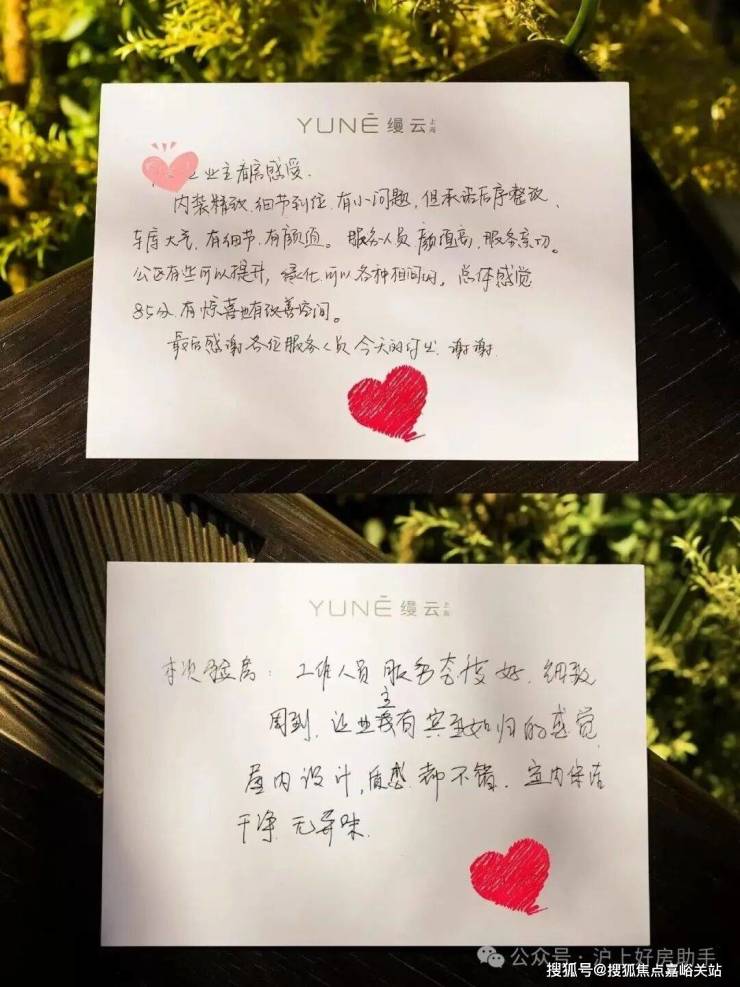 YUNĒ 缦云 上海
业主看房感受.
内装精致.细节到位.有小问题,但承诺后序整改、
车库大气,有细节.有颜值。服务人员颜值高,服务亲切。
公区有些可以提升,绿化可以各种相间的,总体感觉
85分.有惊喜也有改善空间。
最后感谢各位服务人员今天的付出.谢谢.
YUNĒ 缦云 上海
本次验房:工作人员服务态度好.细致
周到,让业主有宾至如归的感觉
屋内设计,质感都不错.室内保洁
干净.无异味.
公众号·沪上好房助手
搜狐号@搜狐焦点嘉峪关站